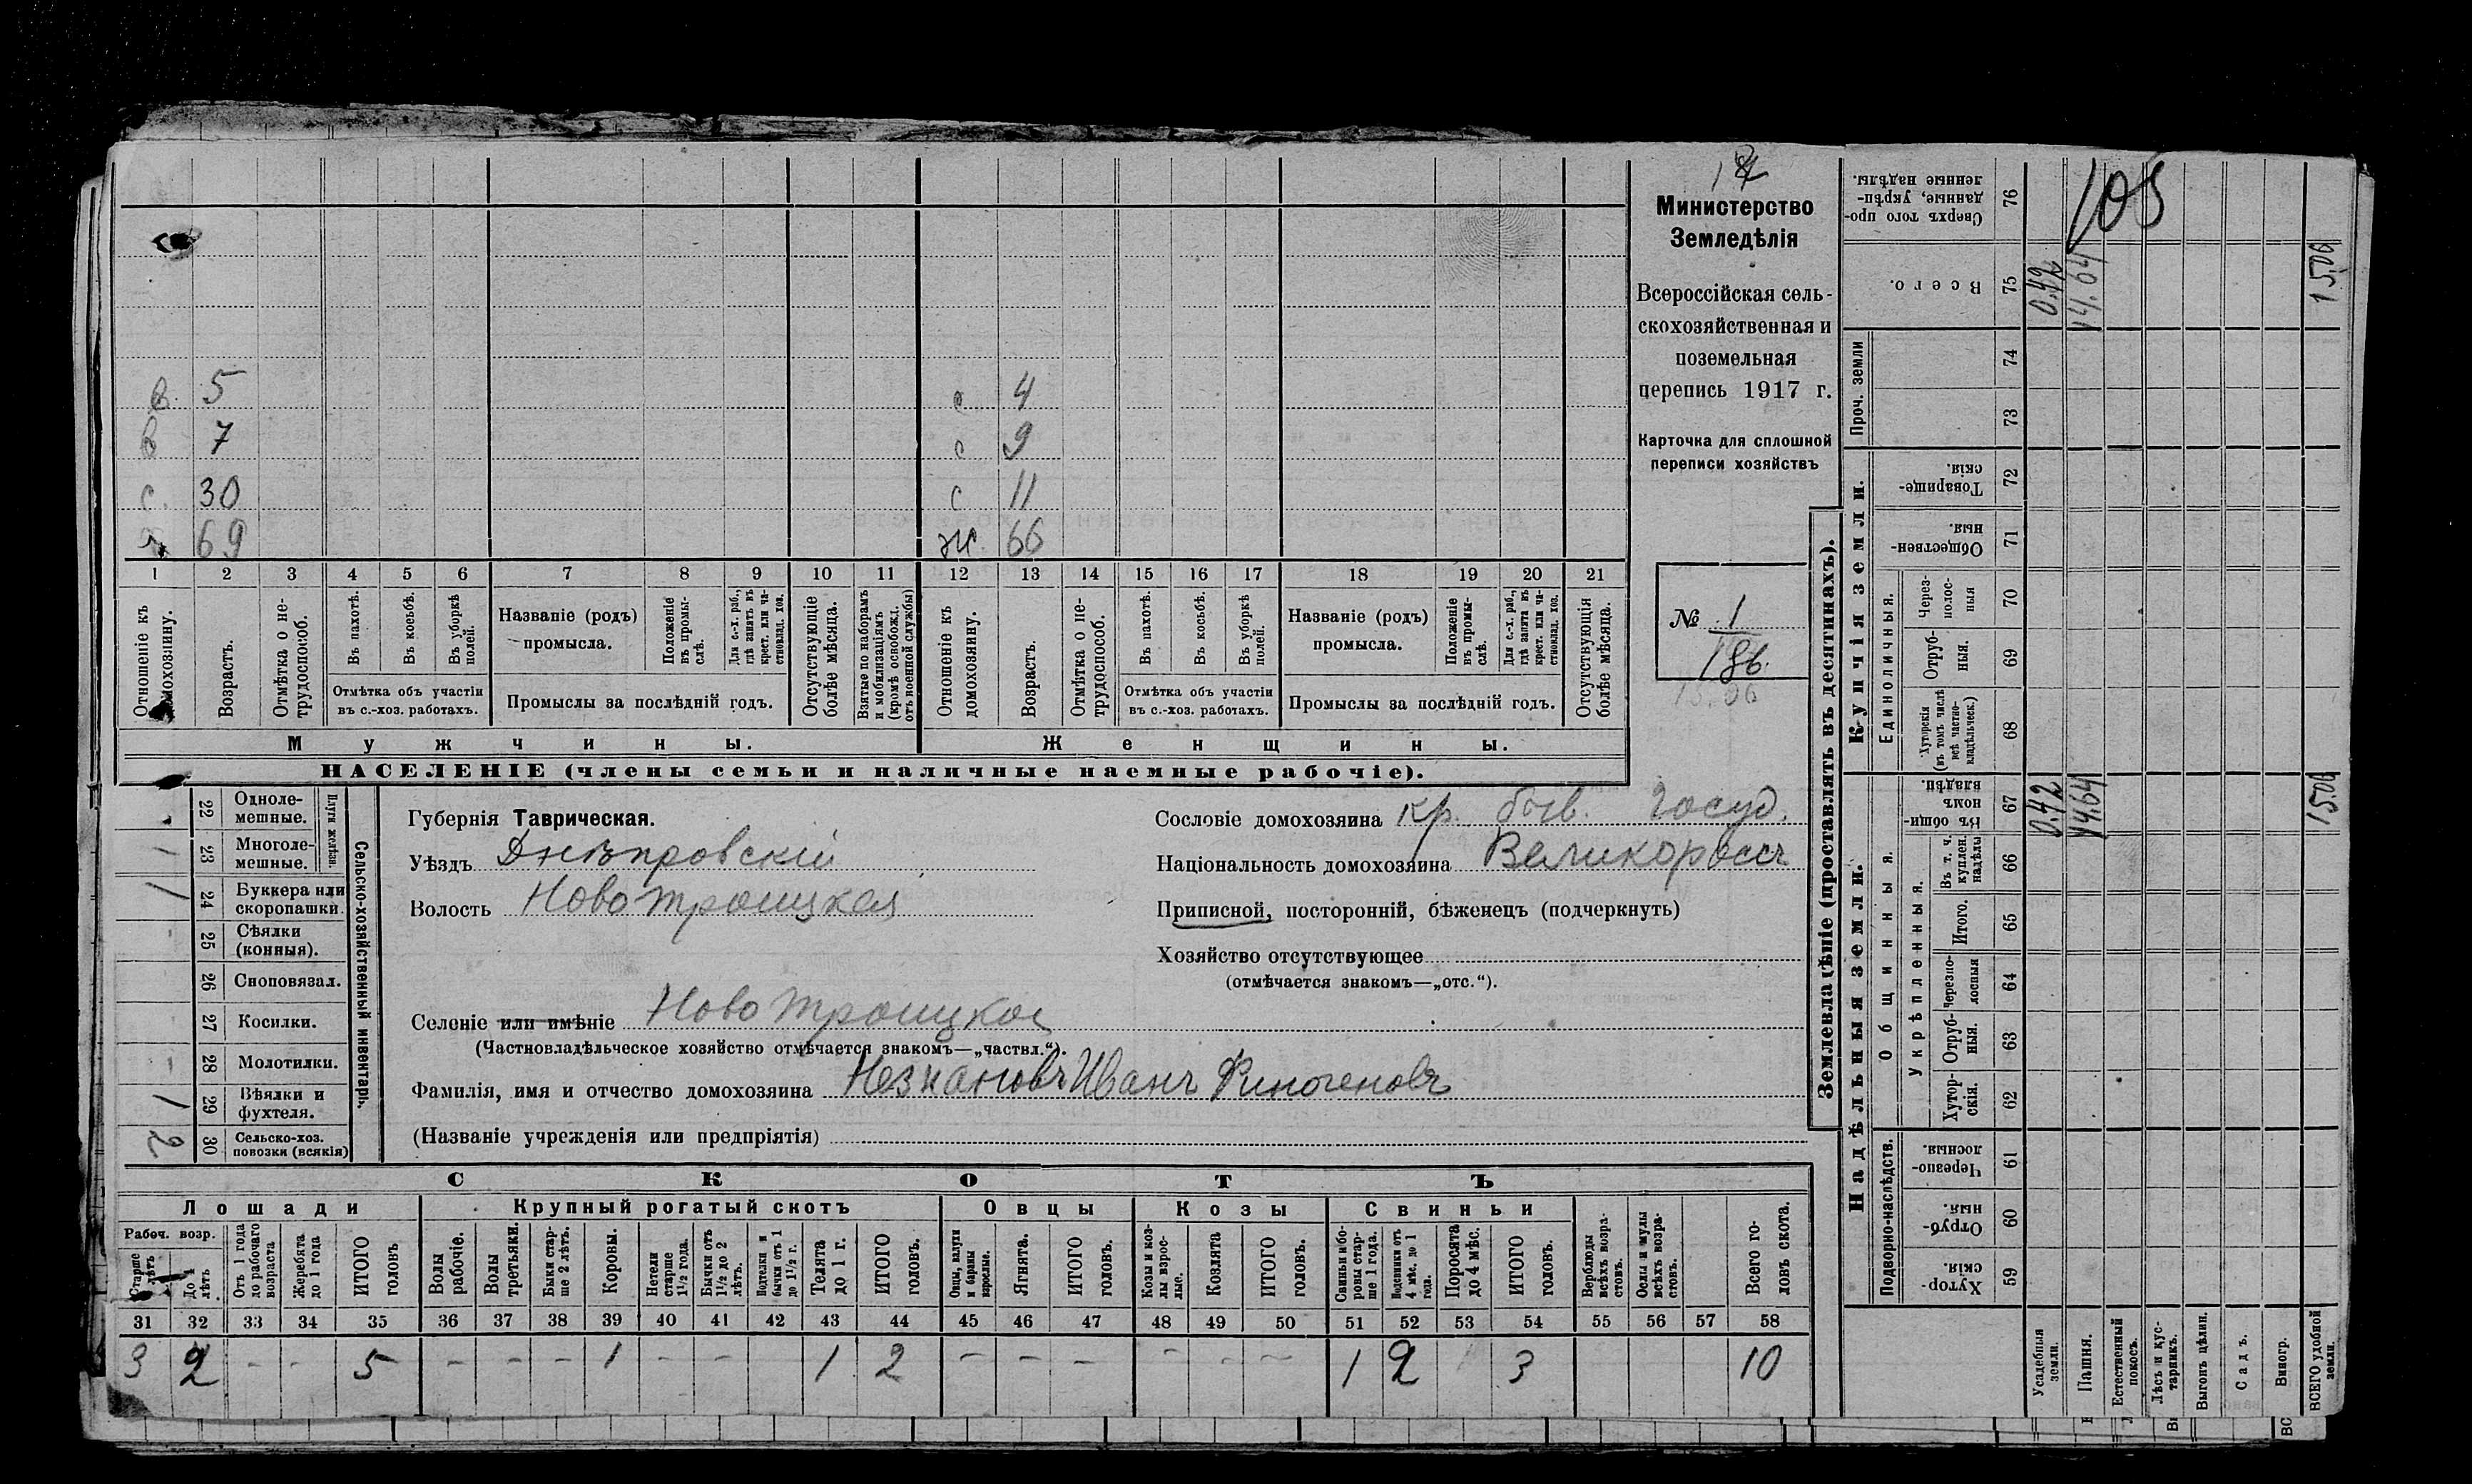 18
Министерство
Земледѣлія
Всероссійская сель-
скохозяйственная и
поземельная
перепись 1917 г.
Карточка для сплошной
переписи хозяйствъ
№ 1
186.
15.06
в. 5 с 4
в 7 с 9
с. 30 с 11
69 ж. 66
1 2 3 4 5 6 7 8 9 10 11 12 13 14 15 16 17 18 19 20 21
Отношеніе къ домохозяину.
Возрастъ.
Отмѣтка о не-трудоспособ.
Въ пахотѣ.
Въ косьбѣ.
Въ уборкѣ полей.
Отмѣтка объ участіи
въ с.-хоз. работахъ.
Названіе (родъ)
промысла.
Положеніе въ промы-слѣ.
Для с.-х. раб., гдѣ занятъ въ крест. или ча-стновлад. хоз.
Промыслы за послѣдній годъ.
Отсутствующіе болѣе мѣсяца.
Взятые по наборамъ и мобилизаціямъ (кромѣ освобожд. отъ военной службы)
Отношеніе къ домохозяину.
Возрастъ.
Отмѣтка о не-трудоспособ.
Въ пахотѣ.
Въ косьбѣ.
Въ уборкѣ полей.
Отмѣтка объ участіи
въ с.-хоз. работахъ.
Названіе (родъ)
промысла.
Положеніе въ промы-слѣ.
Для с.-х. раб., гдѣ занята въ крест. или ча-стновлад. хоз.
Промыслы за послѣдній годъ.
Отсутствующія болѣе мѣсяца.
Мужчины. Женщины.
НАСЕЛЕНІЕ (члены семьи и наличные наемные рабочіе).
Сельско-хозяйственный инвентарь.
Плуги желѣзн.
22 Одноле-мешные.
23 Многоле-мешные. 1
24 Буккера или скоропашки. 1
25 Сѣялки (конныя).
26 Сноповязал.
27 Косилки.
28 Молотилки.
29 Вѣялки и фухтеля. 1
30 Сельско-хоз. повозки (всякія) 2
Губернія Таврическая.
Уѣздъ Днѣпровскій
Волость Новотроицкая
Селеніе или имѣніе Новотроицкое
(Частновладѣльческое хозяйство отмѣчается знакомъ—„частвл.“).
Фамилія, имя и отчество домохозяина Незнановъ Иванъ Финогеновъ
(Названіе учрежденія или предпріятія)
Сословіе домохозяина кр. быв. Госуд.
Національность домохозяина Великороссъ
Приписной, посторонній, бѣженецъ (подчеркнуть)
Хозяйство отсутствующее
(отмѣчается знакомъ—„отс.“).
СКОТЪ
Лошади Крупный рогатый скотъ Овцы Козы Свиньи
Рабоч. возр.
Старше лѣтъ
До лѣтъ
Отъ 1 года до рабочаго возраста
Жеребята до 1 года
ИТОГО головъ
Волы рабочіе.
Волы третьяки.
Быки стар-ше 2 лѣтъ.
Коровы.
Нетели старше 1½ года.
Бычки отъ 1½ до 2 лѣтъ.
Подтелки и бычки отъ 1 до 1½ г.
Телята до 1 г.
ИТОГО головъ.
Овцы, валухи и бараны взрослые.
Ягнята.
ИТОГО головъ.
Козы и коз-лы взрос-лые.
Козлята
ИТОГО головъ.
Свиньи и бо-ровы стар-ше 1 года.
Подсвинки отъ 4 мѣс. до 1 года.
Поросята до 4 мѣс.
ИТОГО головъ.
Верблюды всѣхъ возра-стовъ.
Ослы и мулы всѣхъ возра-стовъ.
Всего го-ловъ скота.
31 32 33 34 35 36 37 38 39 40 41 42 43 44 45 46 47 48 49 50 51 52 53 54 55 56 57 58
3 2 - - 5 - - - 1 - - 1 2 - - - - - - 1 2 3 10
Землевладѣніе (проставлять въ десятинахъ).
Надѣльныя земли. Купчія земли.
Подворно-наслѣдств.
Общинныя.
Укрѣпленныя.
Единоличныя.
Проч. земли
Хутор-скія. 59
Отруб-ныя. 60
Черезпо-лосныя. 61
Хутор-скія. 62
Отруб-ныя. 63
Черезпо-лосныя 64
Итого. 65
Въ т. ч. куплен. надѣлы 66
Въ общин-номъ владѣн. 67
Хуторскія (въ томъ числѣ всѣ частно-владѣльческ.) 68
Отруб-ныя. 69
Через-полос-ныя 70
Обществен-ныя. 71
Товарище-скія. 72
73
74
Всего. 75
Сверхъ того про-данные, укрѣп-ленные надѣлы. 76
105
Усадебныя земли. 0.42 0.42
Пашня. 14.64 14.64
Естественный покосъ.
Лѣсъ и кус-тарникъ.
Выгонъ цѣлин.
Садъ.
Виногр.
ВСЕГО удобной земли. 15.06 15.06